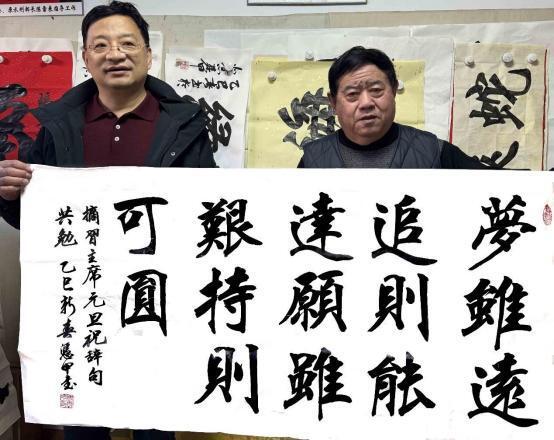 指导工作
夢雖遠
追則能
達願雖
艱持則
可圓
摘習主席元旦祝辞句
共勉 乙巳新春
蛇